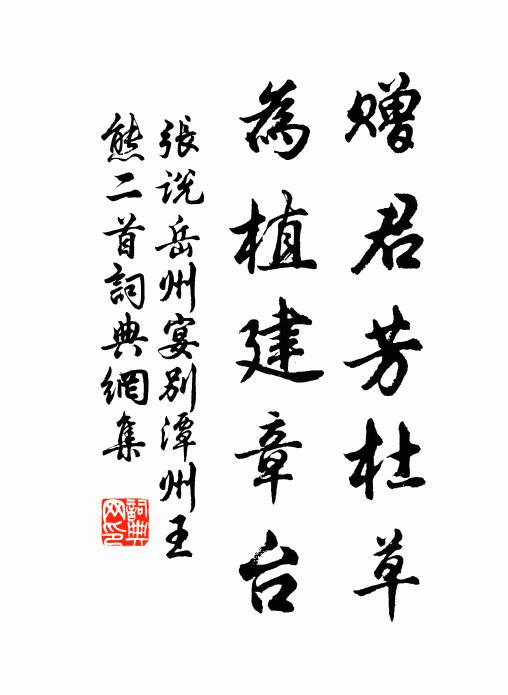 赠君芳杜草
為植建章台
張説岳州宴别潭州王
熊二首詞典網集
詞典
网印